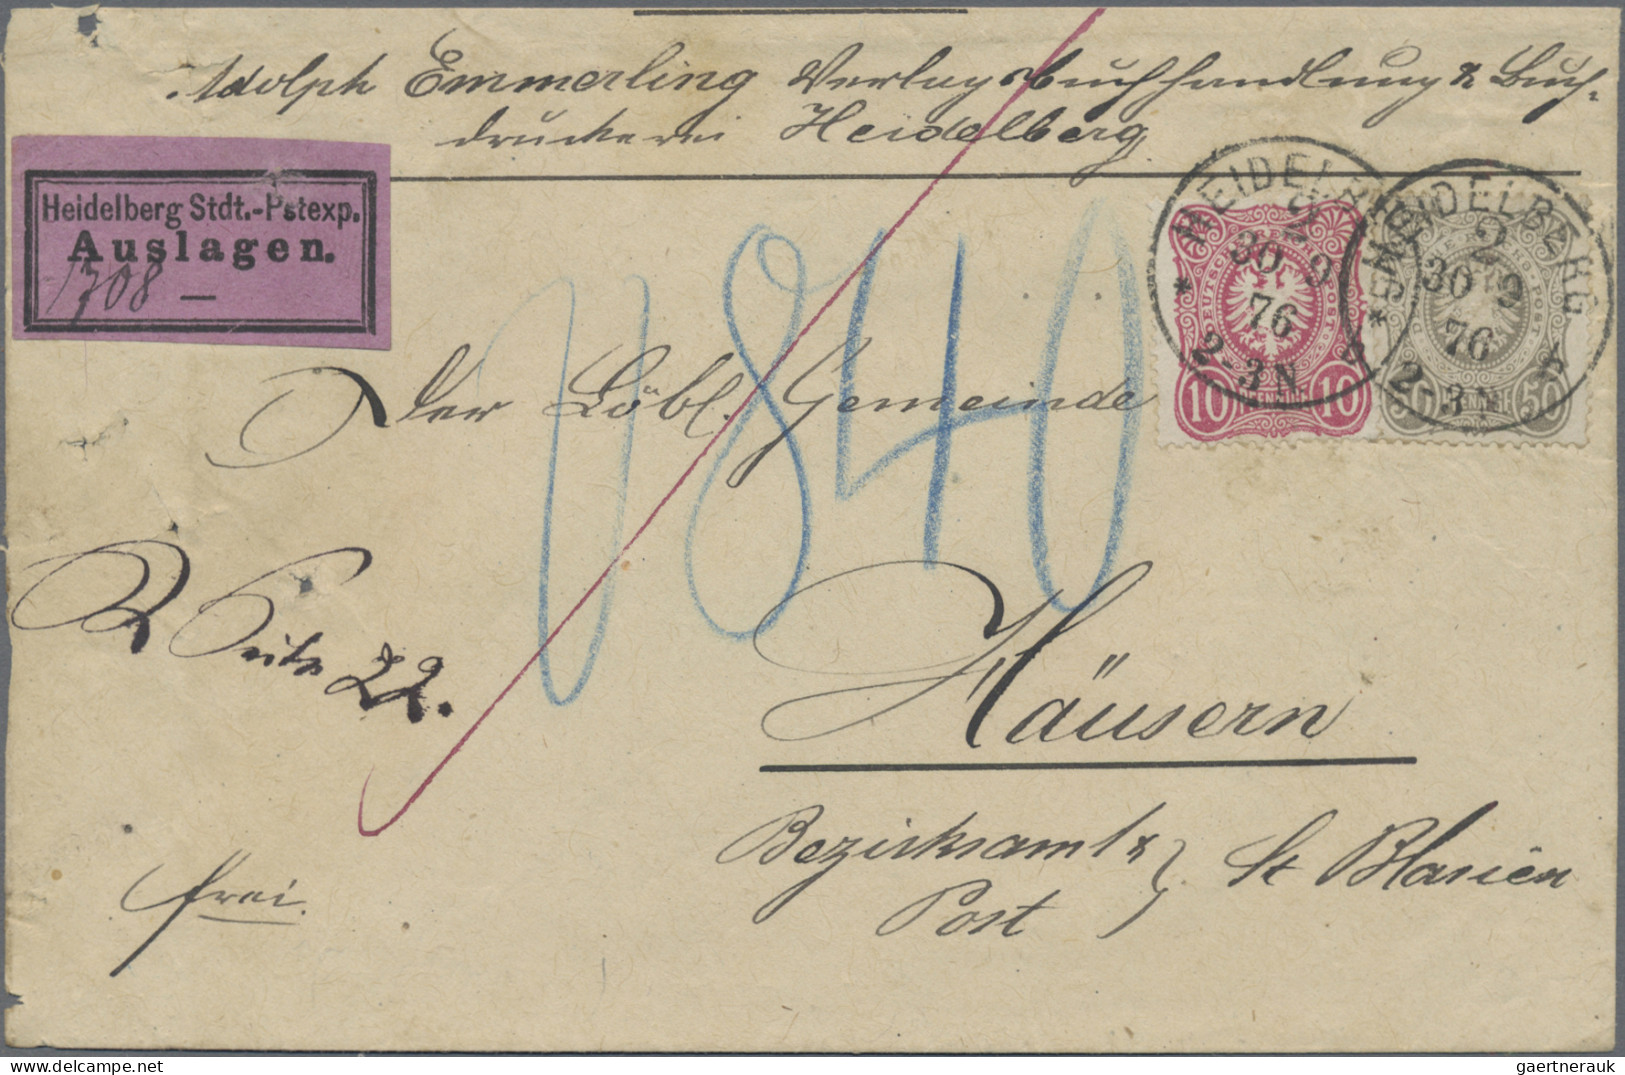 Adolph Emmerling Verlagsbuchhandlung & Buch-
druckerei Heidelberg
Heidelberg Stdt.-Pstexp.
Auslagen.
1708 —
HEIDELBERG
2
30 9
76
2-3 N
HEIDELBERG
2
30 9
76
2-3 N
DEUTSCHE REICHS-POST
10 PFENNIG 10
50 PFENNIG 50
840
Der Löbl. Gemeinde
Seite 22.
Häusern
Bezirksamt &
Post } St Blasien
frei.
gaertnerauk